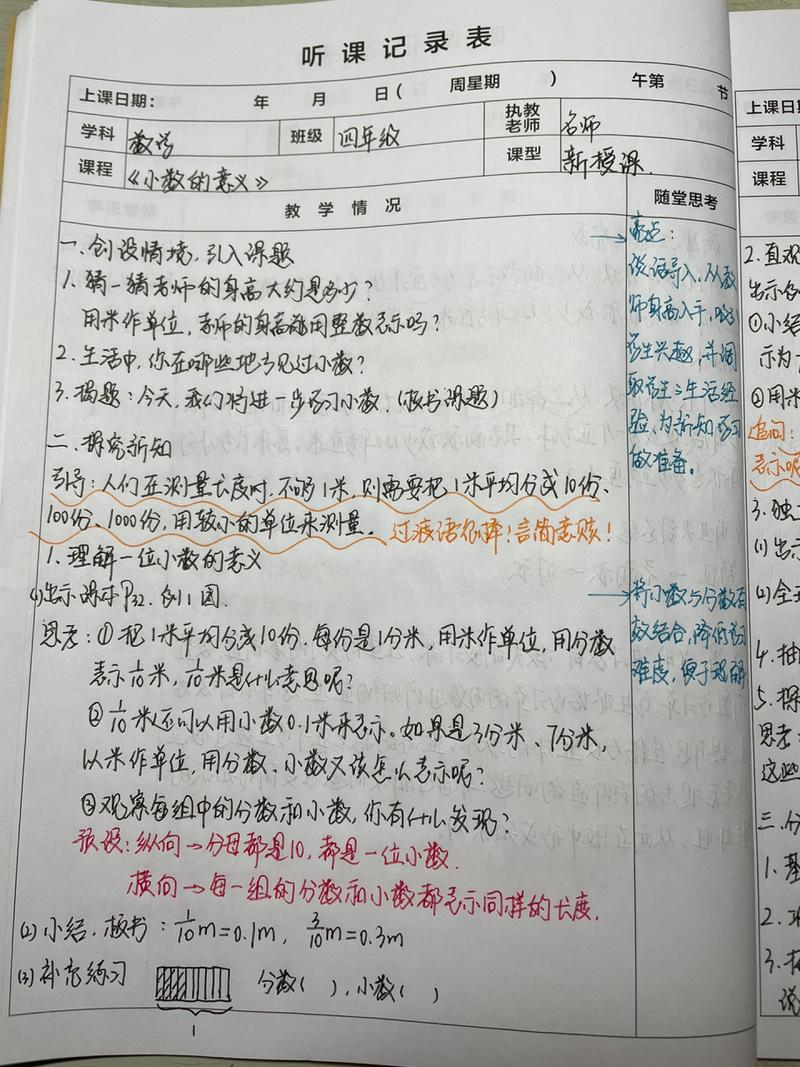 听课记录表
上课日期： 年 月 日( 周星期 ) 午第 节
学科 数学 班级 四年级 执教老师 名师
课程 《小数的意义》 课型 新授课.
教 学 情 况 随堂思考
一、创设情境，引入课题
1. 猜一猜老师的身高大约是多少？
用米作单位，老师的身高能用整数表示吗？
2. 生活中，你在哪些地方见过小数？
3. 揭题：今天，我们将进一步学习小数.（板书课题）
二、探究新知
引导：人们在测量长度时，不够1米，则需要把1米平均分成10份、
100份、1000份，用较小的单位来测量。过渡语很棒！言简意赅！
1. 理解一位小数的意义
(1) 出示课本P32. 例1图.
思考：① 把1米平均分成10份. 每份是1分米，用米作单位，用分数
表示1/10米，1/10米是什么意思呢？
② 1/10米还可以用小数0.1米来表示。如果是3分米、7分米，
以米作单位，用分数、小数又该怎么表示呢？
③ 观察每组中的分数和小数，你有什么发现？
预设：纵向→分母都是10，都是一位小数.
横向→每一组的分数和小数都表示同样的长度.
(2) 小结. 板书：1/10m=0.1m, 3/10m=0.3m
(3) 补充练习 分数( )，小数( )
1
→亮点：
谈话导入，从教
师身高入手，吸引
学生兴趣，并调
取学生之生活经
验，为新知学习
做准备。
→将小数与分数有
效结合，降低学习
难度，便于理解
上课日期
学科
课程
2. 直观
出示例
①小结
示为
②用米
追问：
表示呢
3. 独立
(1) 出示
(2) 全
4. 抽
5. 探
思考：
这些
三、分
1. 基
2.
3.
说